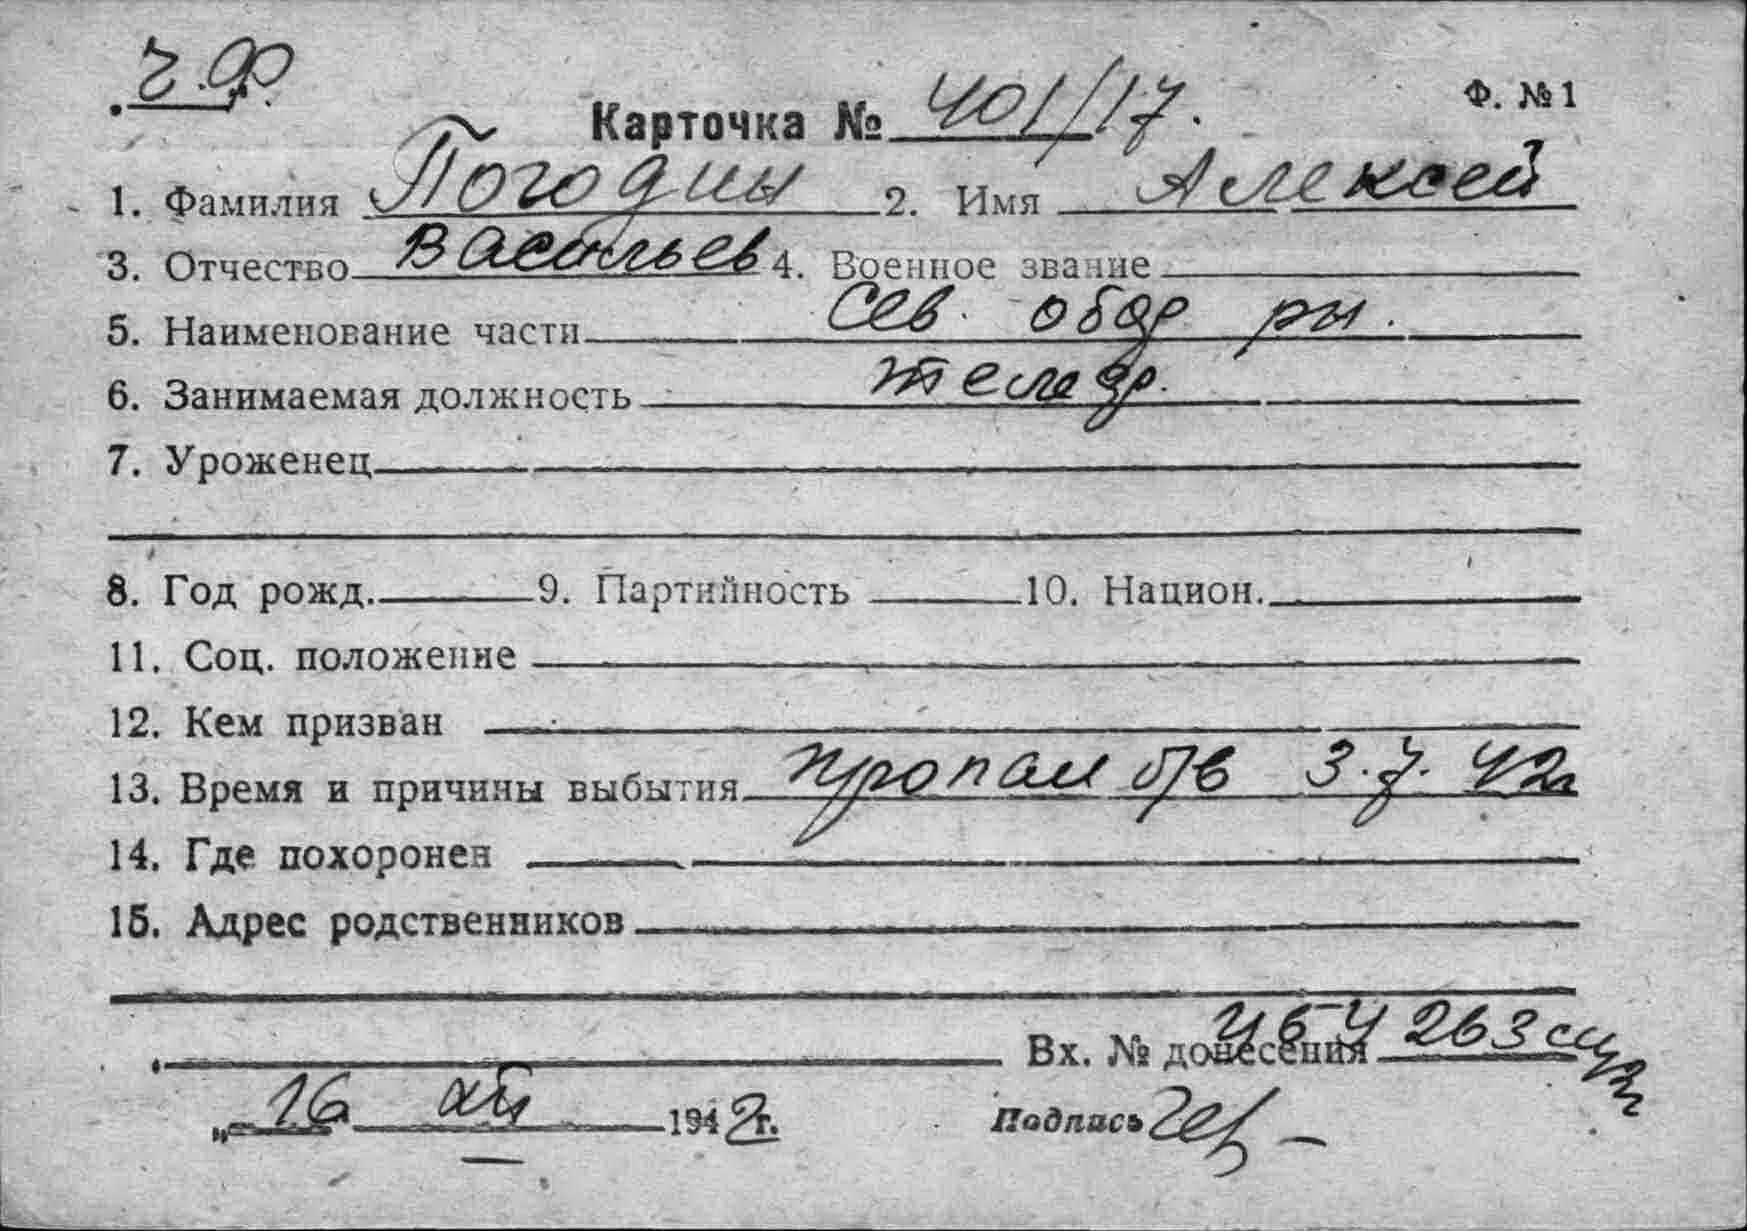 Ч.Ф.
Ф. №1
Карточка № 401/17.
1. Фамилия Погодин 2. Имя Алексей
3. Отчество Васильев 4. Военное звание
5. Наименование части Сев. обор рн.
6. Занимаемая должность
7. Уроженец
8. Год рожд. 9. Партийность 10. Национ.
11. Соц. положение
12. Кем призван
13. Время и причины выбытия пропал б/в 3.7.42г
14. Где похоронен
15. Адрес родственников
Вх. № донесения 263
"16 1942г. Подпись